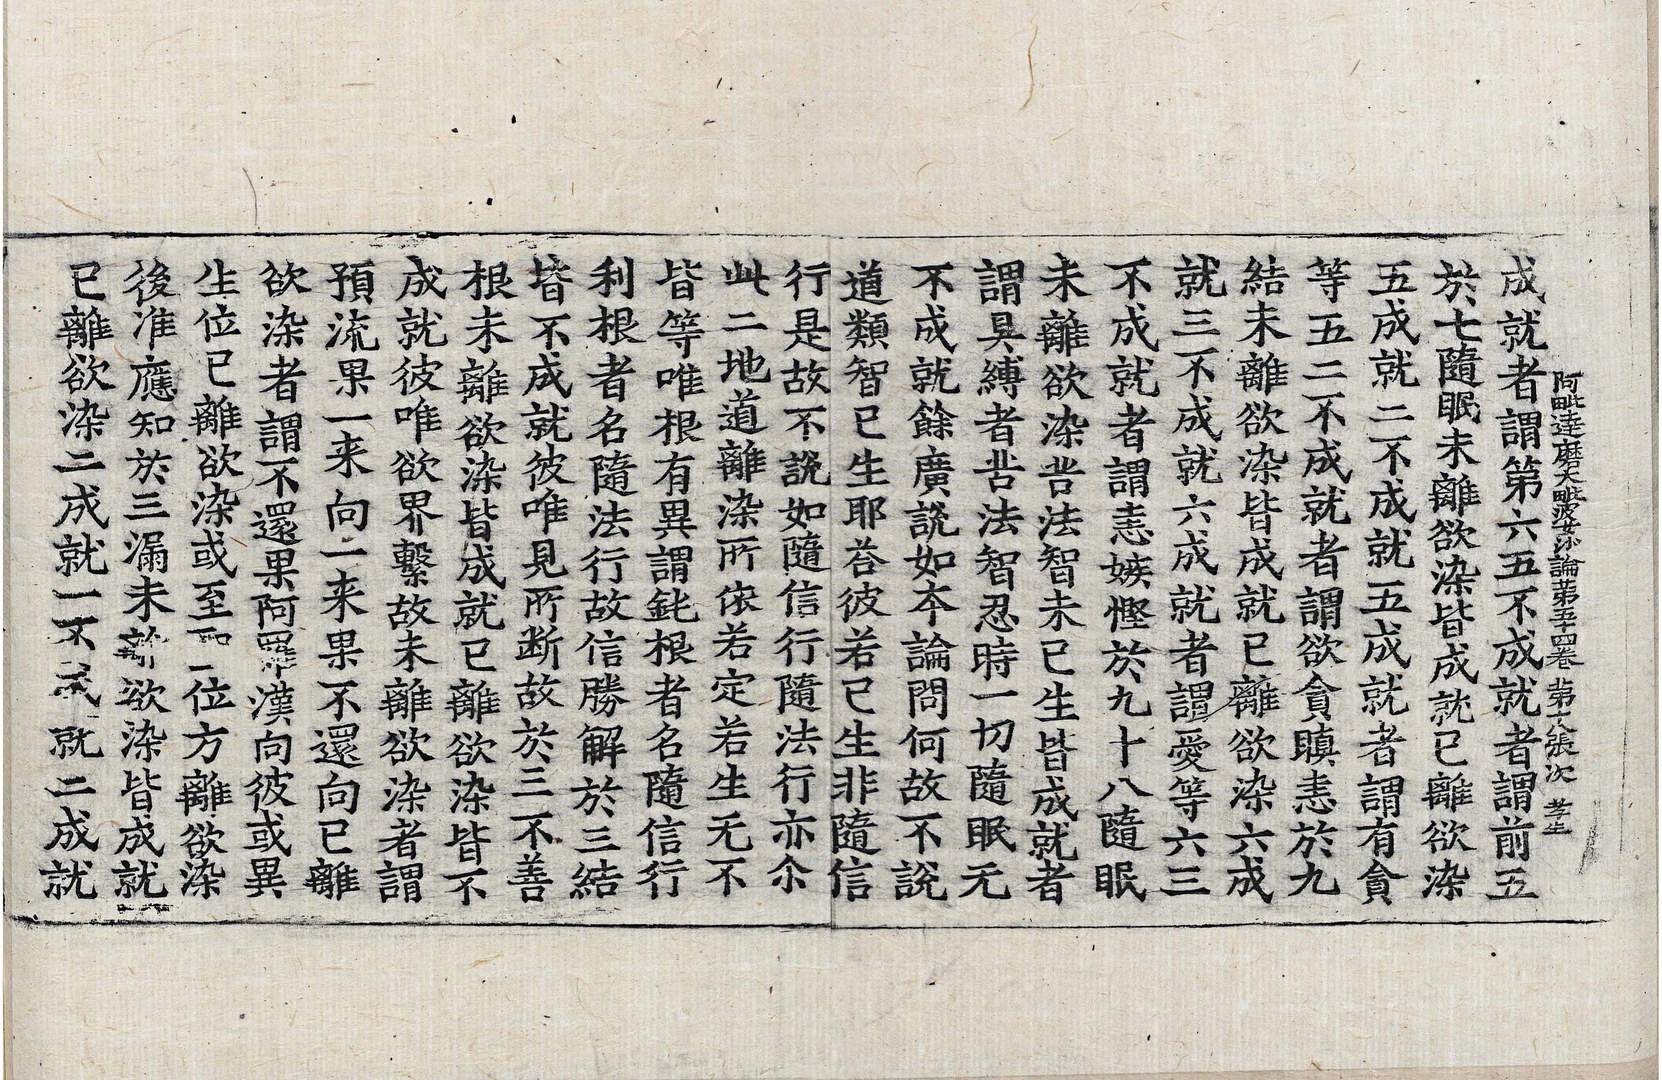 阿毗達磨大毗婆沙論第五十四卷 第十張 次 孝生
成就者謂第六五不成就者謂前五
於七隨眠未離欲染皆成就已離欲染
五成就二不成就五成就者謂有貪
等五二不成就者謂欲貪瞋恚於九
結未離欲染皆成就已離欲染六成
就三不成就六成就者謂愛等六三
不成就者謂恚嫉慳於九十八隨眠
未離欲染苦法智未已生皆成就者
謂具縛者苦法智忍時一切隨眠无
不成就餘廣說如本論問何故不說
道類智已生耶荅彼若已生非隨信
行是故不說如隨信行隨法行亦尒
此二地道離染所依若定若生无不
皆等唯根有異謂鈍根者名隨信行
利根者名隨法行故信勝解於三結
皆不成就彼唯見所断故於三不善
根未離欲染皆成就已離欲染皆不
成就彼唯欲界繫故未離欲染者謂
預流果一来向一来果不還向已離
欲染者謂不還果阿羅漢向彼或異
生位已離欲染或至二位方離欲染
後准應知於三漏未離欲染皆成就
已離欲染二成就一不成就二成就